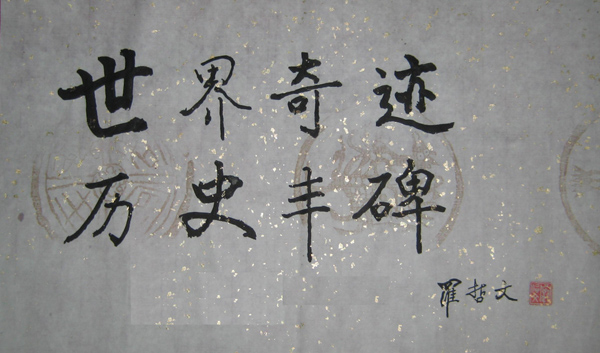 世界奇迹
历史丰碑
羅哲文